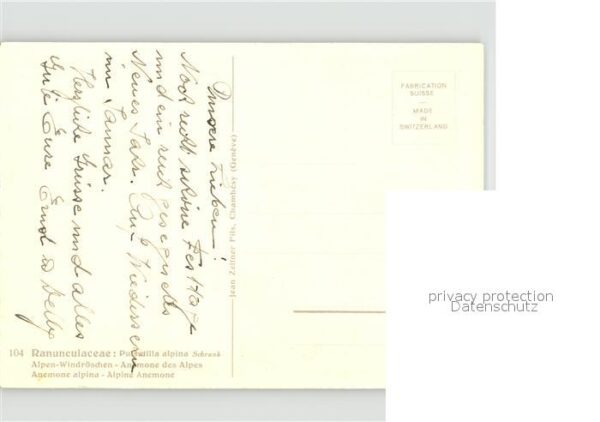 Unsere Lieben!
Noch recht schöne Festtage
und ein recht gesegnetes
Neues Jahr. Auf Wiedersehn
im Januar.
Herzliche Grüsse und alles
Gute Eure
Jean Zellner Fils, Chambésy (Genève)
FABRICATION
SUISSE
MADE
IN
SWITZERLAND
privacy protection
Datenschutz
104 Ranunculaceae: Pulsatilla alpina Schrank
Alpen-Windröschen - Anemone des Alpes
Anemone alpina - Alpine Anemone